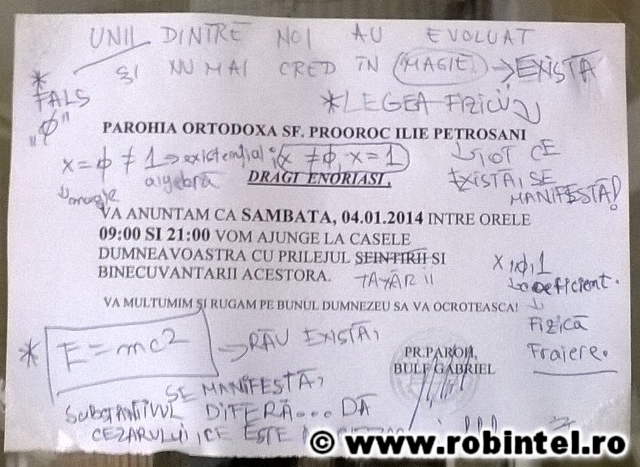 UNII DINTRE NOI AU EVOLUAT
ȘI NU MAI CRED ÎN MAGIE. → EXISTĂ
* FALS
"Φ"
*LEGEA FIZICII
PAROHIA ORTODOXA SF. PROOROC ILIE PETROSANI
x = Φ ≠ 1 → existențial; x ≠ Φ, x = 1
↓ magie
algebră
↓ TOT CE
EXISTĂ, SE
MANIFESTĂ!
DRAGI ENORIASI,
VA ANUNTAM CA SAMBATA, 04.01.2014 INTRE ORELE
09:00 SI 21:00 VOM AJUNGE LA CASELE
DUMNEAVOASTRA CU PRILEJUL SFINTIRII SI
BINECUVANTARII ACESTORA.
x, Φ, 1
↓ coeficient.
↓
FIZICĂ
Fraiere.
VA MULTUMIM SI RUGAM PE BUNUL DUMNEZEU SA VA OCROTEASCA!
* E = mc2 → RĂU EXISTĂ,
SE MANIFESTĂ,
SUBSTANTIVUL DIFERĂ... DĂ
CEZARULUI CE ESTE
PR.PAROH,
BULF GABRIEL
!!!
© www.robintel.ro